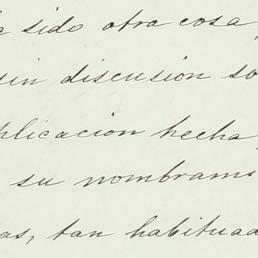 sido otra cosa,
sin discusión so
plicación hecha,
su nombram
as, tan habituad